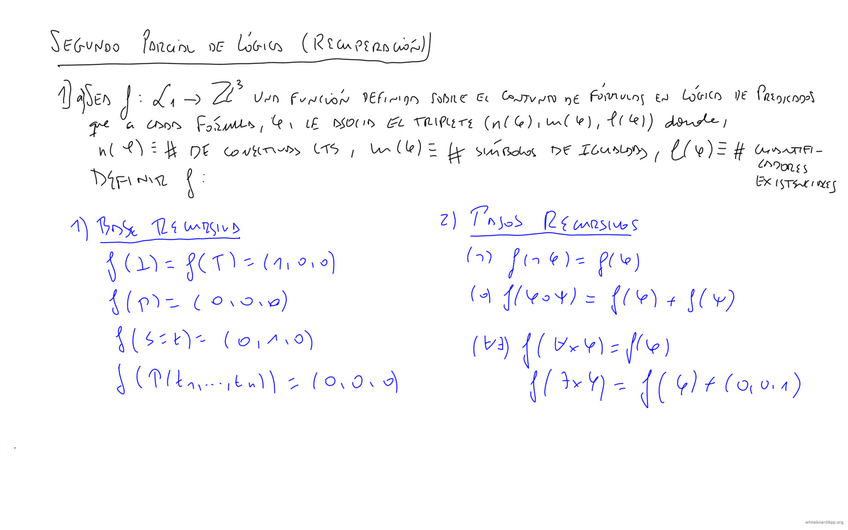 SEGUNDO PARCIAL DE LÓGICA (RECUPERACIÓN)
1) a) SEA f: L₁ → ℤ³ UNA FUNCIÓN DEFINIDA SOBRE EL CONJUNTO DE FÓRMULAS EN LÓGICA DE PREDICADOS
que A CADA FÓRMULA, φ, LE ASOCIA EL TRIPLETE (n(φ), m(φ), l(φ)) donde,
n(φ) ≡ # DE CONECTIVAS CTS, m(φ) ≡ # SÍMBOLOS DE IGUALDAD, l(φ) ≡ # CUANTIFI-
CADORES
EXISTENCIALES
DEFINIR f:
1) BASE RECURSIVA
f(⊥) = f(⊤) = (1,0,0)
f(p) = (0,0,0)
f(s=t) = (0,1,0)
f(P(t₁,...,tₙ)) = (0,0,0)
2) PASOS RECURSIVOS
(¬) f(¬φ) = f(φ)
(o) f(φoψ) = f(φ) + f(ψ)
(∀∃) f(∀xφ) = f(φ)
f(∃xφ) = f(φ) + (0,0,1)
whiteboardApp.org